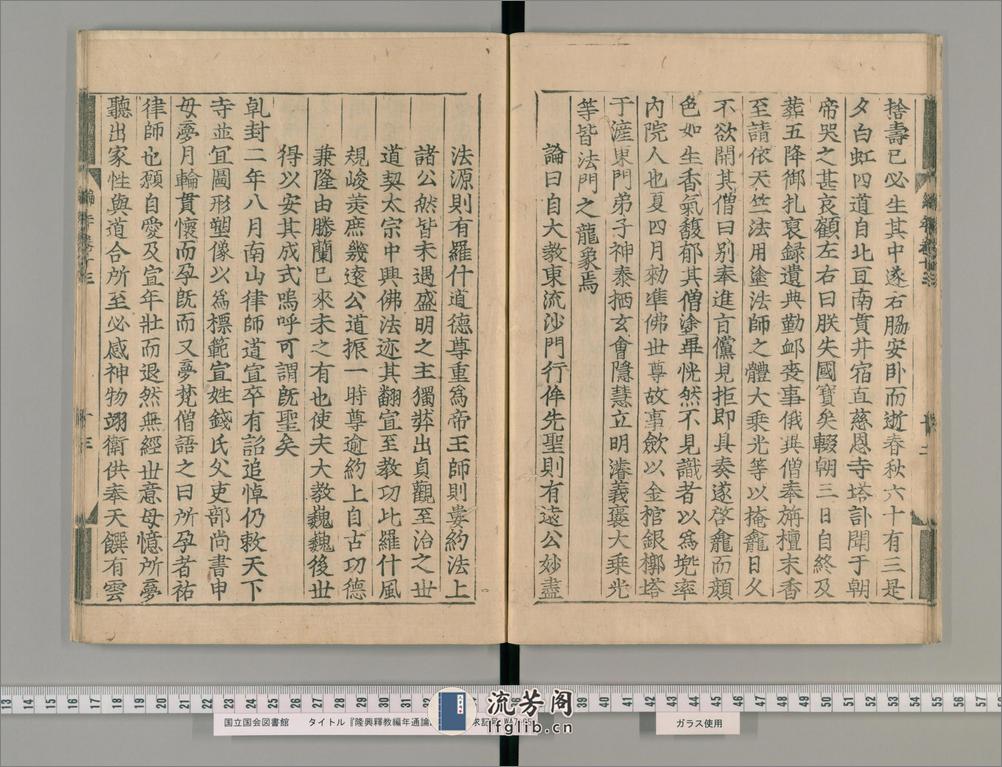 捨壽已必生其中遂右脇安卧而逝春秋六十有三是
夕白虹四道自北亘南貫井宿直慈恩寺塔訃聞于朝
帝哭之甚哀顧左右曰朕失國寶矣輟朝三日自終及
葬五降御札褒録遺典勤卹喪事俄異僧奉旃檀末香
至請依天竺法用塗法師之體大乗光等以掩龕日久
不欲開其僧曰别奉進旨儻見拒即具奏遂啓龕而顔
色如生香氣馥郁其僧塗畢恍然不見識者以爲兠率
内院人也夏四月勑準佛世尊故事歛以金棺銀槨塔
于滻東門弟子神泰栖玄會隱慧立明濬義褒大乗光
等皆法門之龍象焉
論曰自大教東流沙門行侔先聖則有遠公妙盡
法源則有羅什道德尊重爲帝王師則婁約法上
諸公然皆未遇盛明之主獨奘出貞觀至治之世
道契太宗中興佛法迹其翻宣至教功比羅什風
規峻羙庶幾遠公道振一時尊逾約上自古功德
兼隆由騰蘭已來未之有也使夫大教巍巍後世
得以安其成式嗚呼可謂旣聖矣
乹封二年八月南山律師道宣卒有詔追悼仍敕天下
寺並宜圖形塑像以爲標範宣姓錢氏父吏部尚書申
母夢月輪貫懷而孕旣而又夢梵僧語之曰所孕者祐
律師也頮自愛及宣年壯而退然無經世意母憶所夢
聽出家性與道合所至必感神物翊衛供奉天饌有雲
編年卷十三
十二
編年卷十三
十三
国立国会図書館
タイトル『隆興釋教編年通論』
流芳阁
lfglib.cn
ガラス使用
13 14 15 16 17 18 19 20 21 22 23 24 25 26 27 28 29 30 31 32 33 39 40 41 42 43 44 45 46 47 48 49 50 51 52 53 54 55 56 57